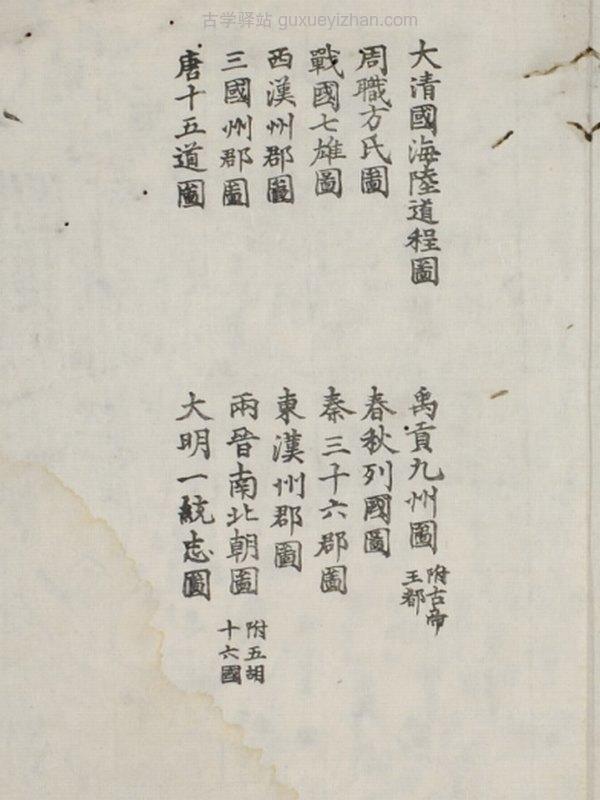 古学驿站 guxueyizhan.com
大清國海陸道程圖
禹貢九州圖
附古帝
王都
周職方氏圖
春秋列國圖
戰國七雄圖
秦三十六郡圖
西漢州郡圖
東漢州郡圖
三國州郡圖
兩晉南北朝圖
附五胡
十六國
唐十五道圖
大明一統志圖